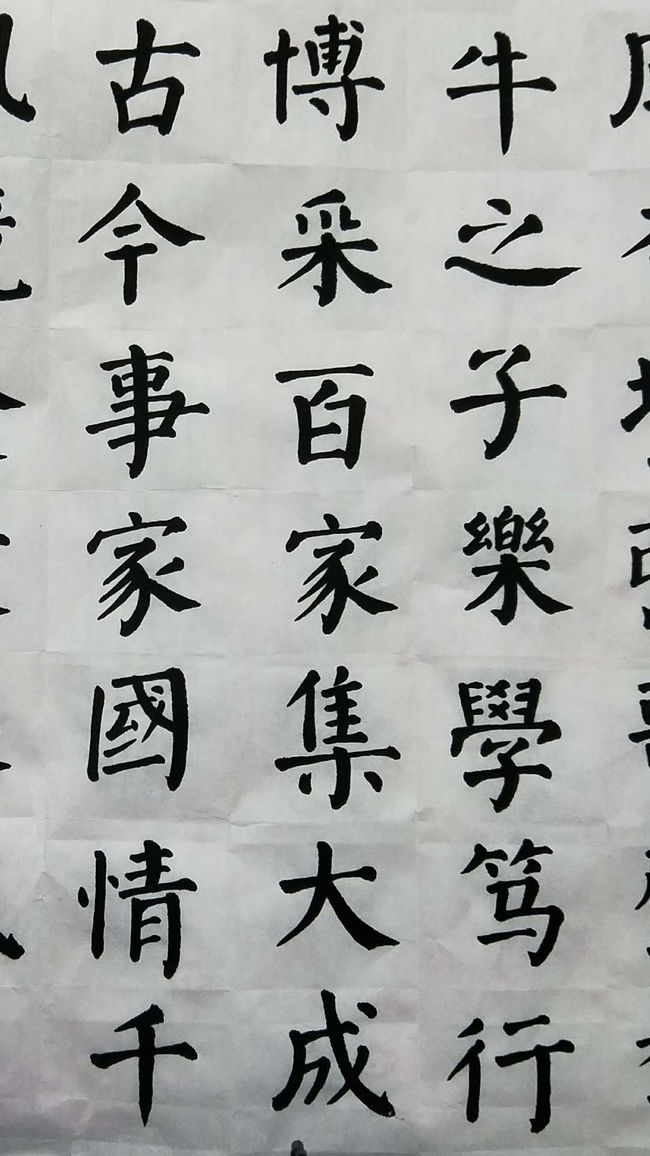 牛之子樂學笃行
博采百家集大成
古今事家國情千